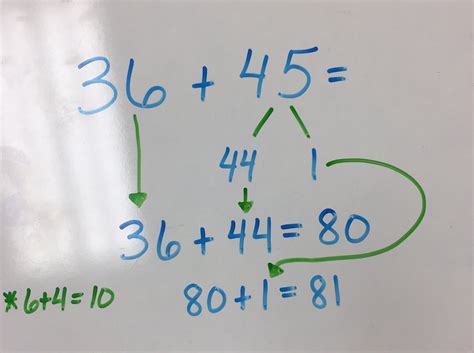 36 + 45 =
44 1
36 + 44 = 80
*6+4=10
80+1=81